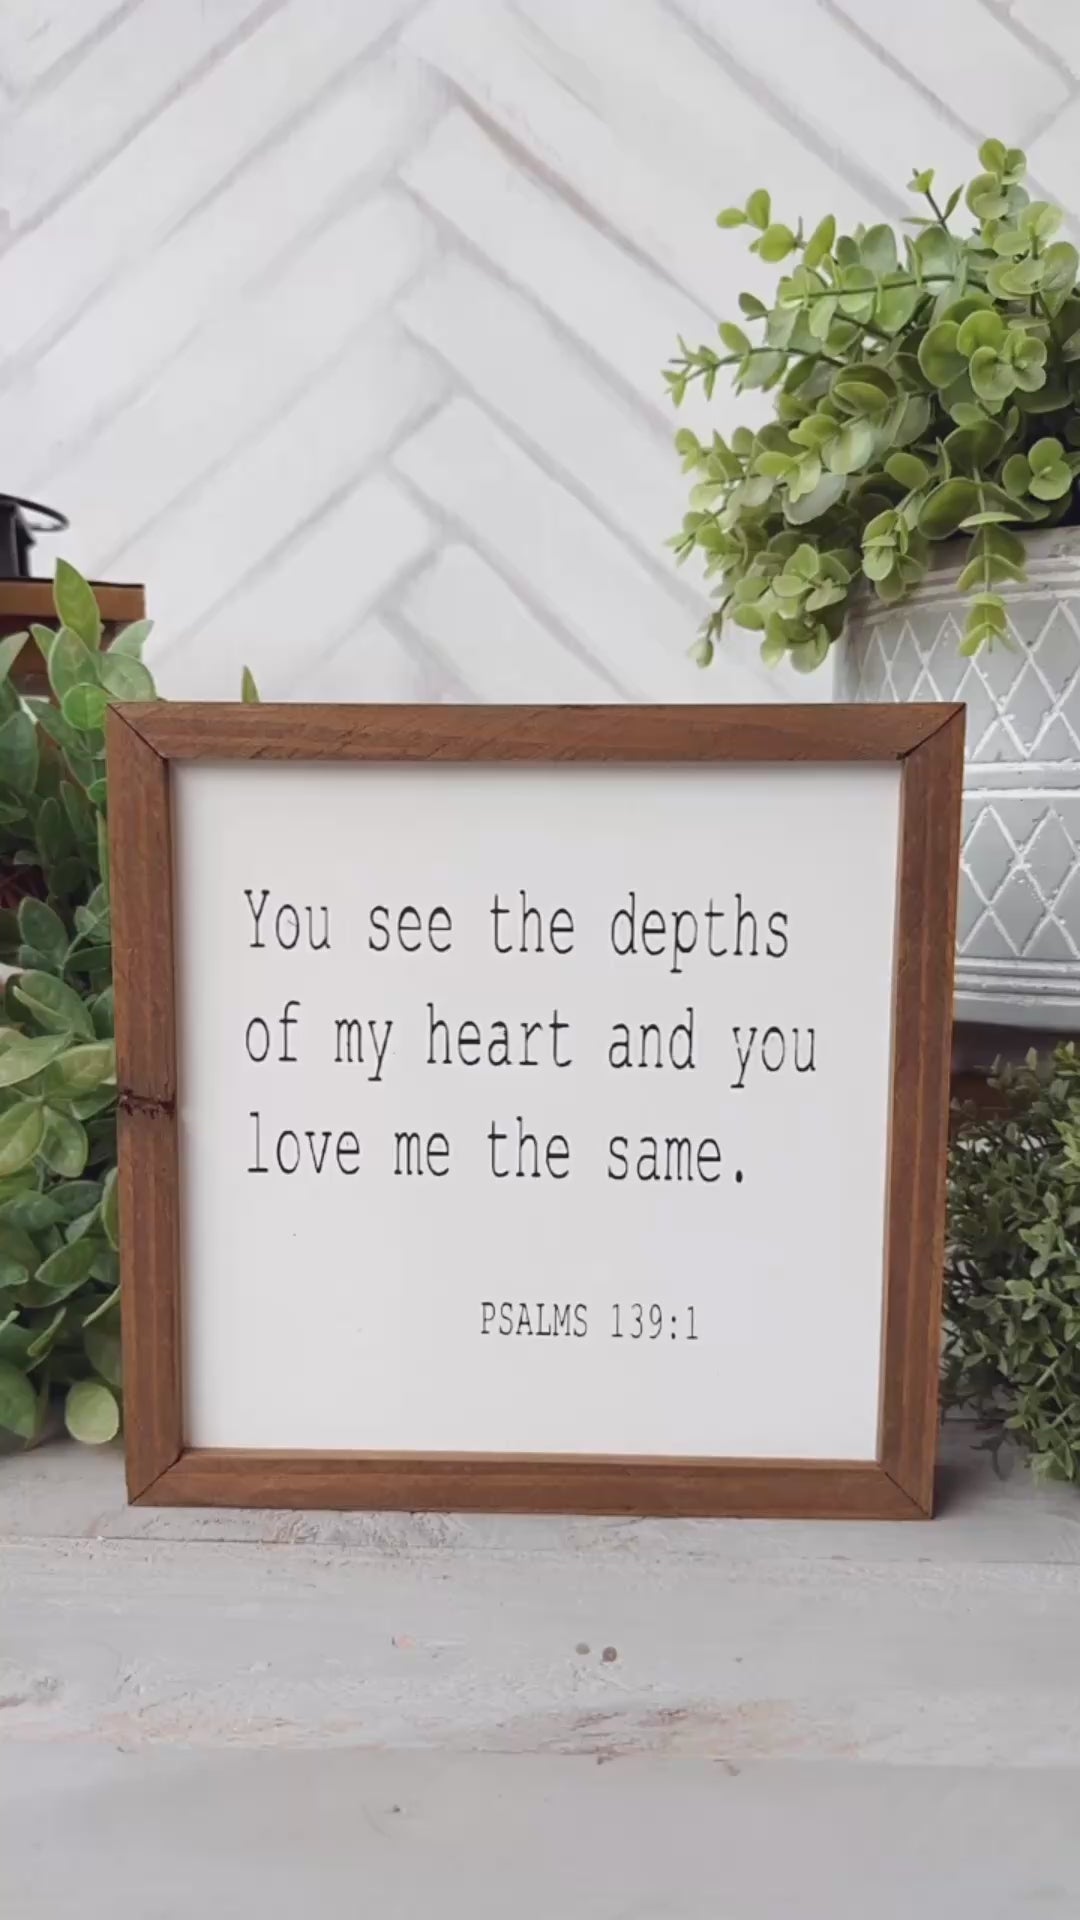 You see the depths
of my heart and you
love me the same.
PSALMS 139:1